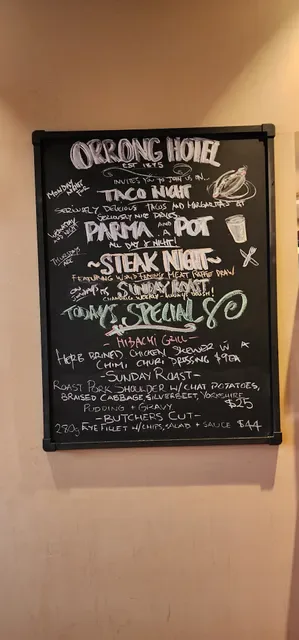 ORRONG HOTEL
EST 1875
INVITES YOU TO JOIN US ON...
MONDAY NIGHT FOR
TACO NIGHT
SERIOUSLY DELICIOUS TACOS AND MARGARITAS AT
SERIOUSLY NICE PRICES
PARMA AND A POT
ALL DAY & NIGHT!
THURSDAYS ARE
~STEAK NIGHT~
FEATURING WORLD FAMOUS MEAT RAFFLE DRAW
ON SUNDAYS IT'S SUNDAY ROAST!
CHANGING WEEKLY - ALWAYS
TODAY'S SPECIALS
- HIBACHI GRILL -
HERB BRINED CHICKEN SKEWER W A
CHIMI CHURI DRESSING $9EA
- SUNDAY ROAST -
ROAST PORK SHOULDER W/ CHAT POTATOES,
BRAISED CABBAGE, SILVERBEET, YORKSHIRE
PUDDING + GRAVY $25
- BUTCHERS CUT -
280g EYE FILLET W/ CHIPS, SALAD + SAUCE $44